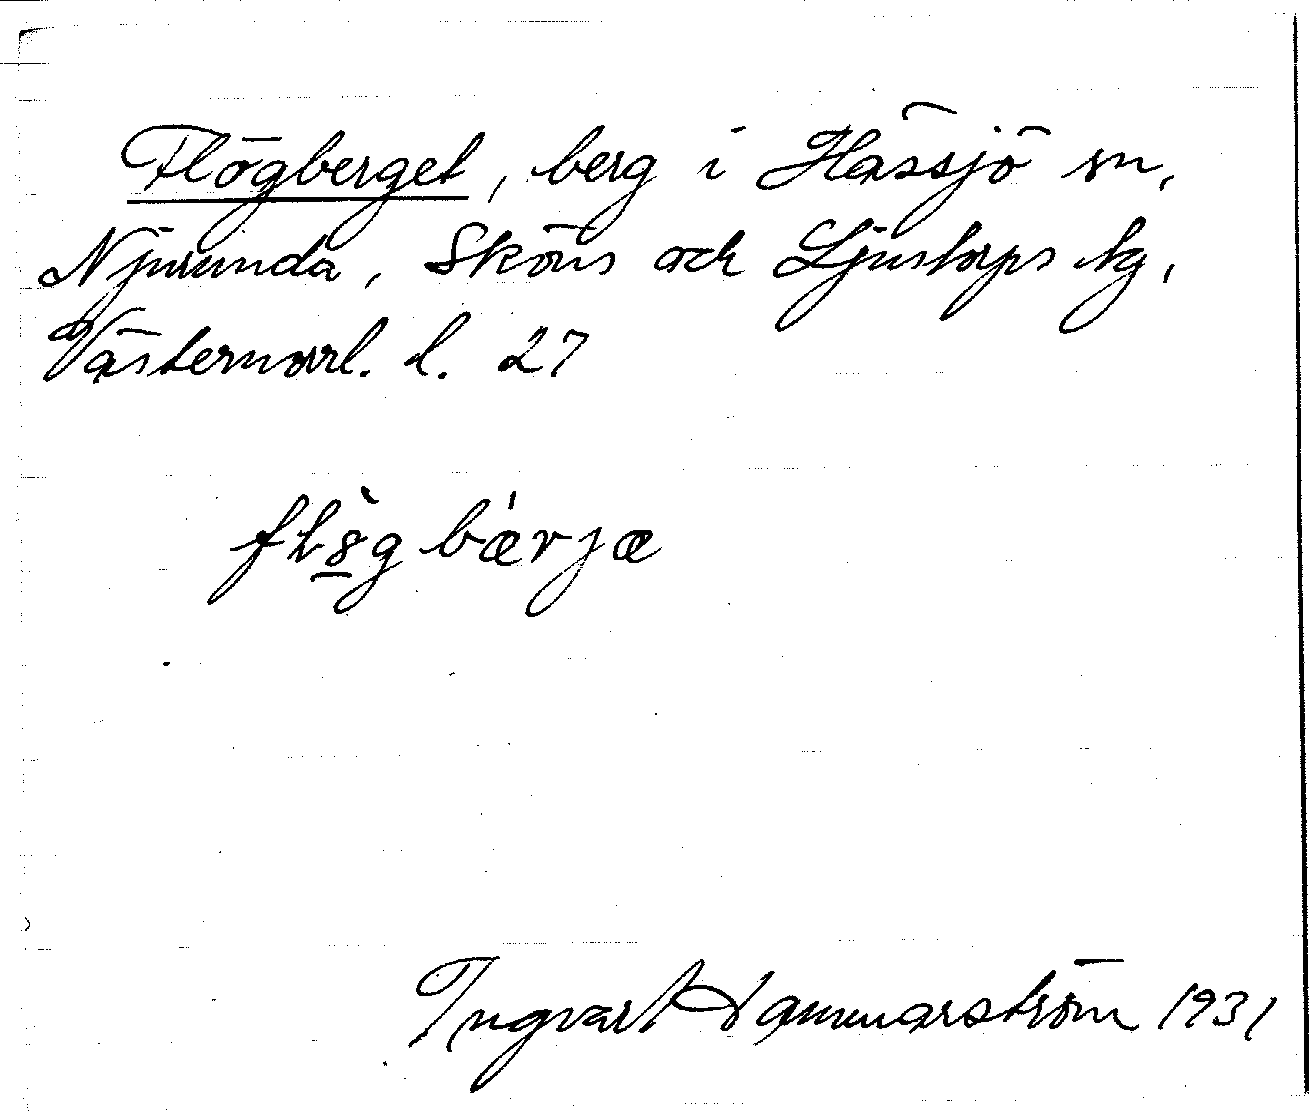 Flögberget, berg i Hässjö sn,
Njurunda, Sköns och Ljustorps tg,
Västernorrl. l. 27
fḷ8̲̀g bǽrjæ
Ingvart Hammarström 1931